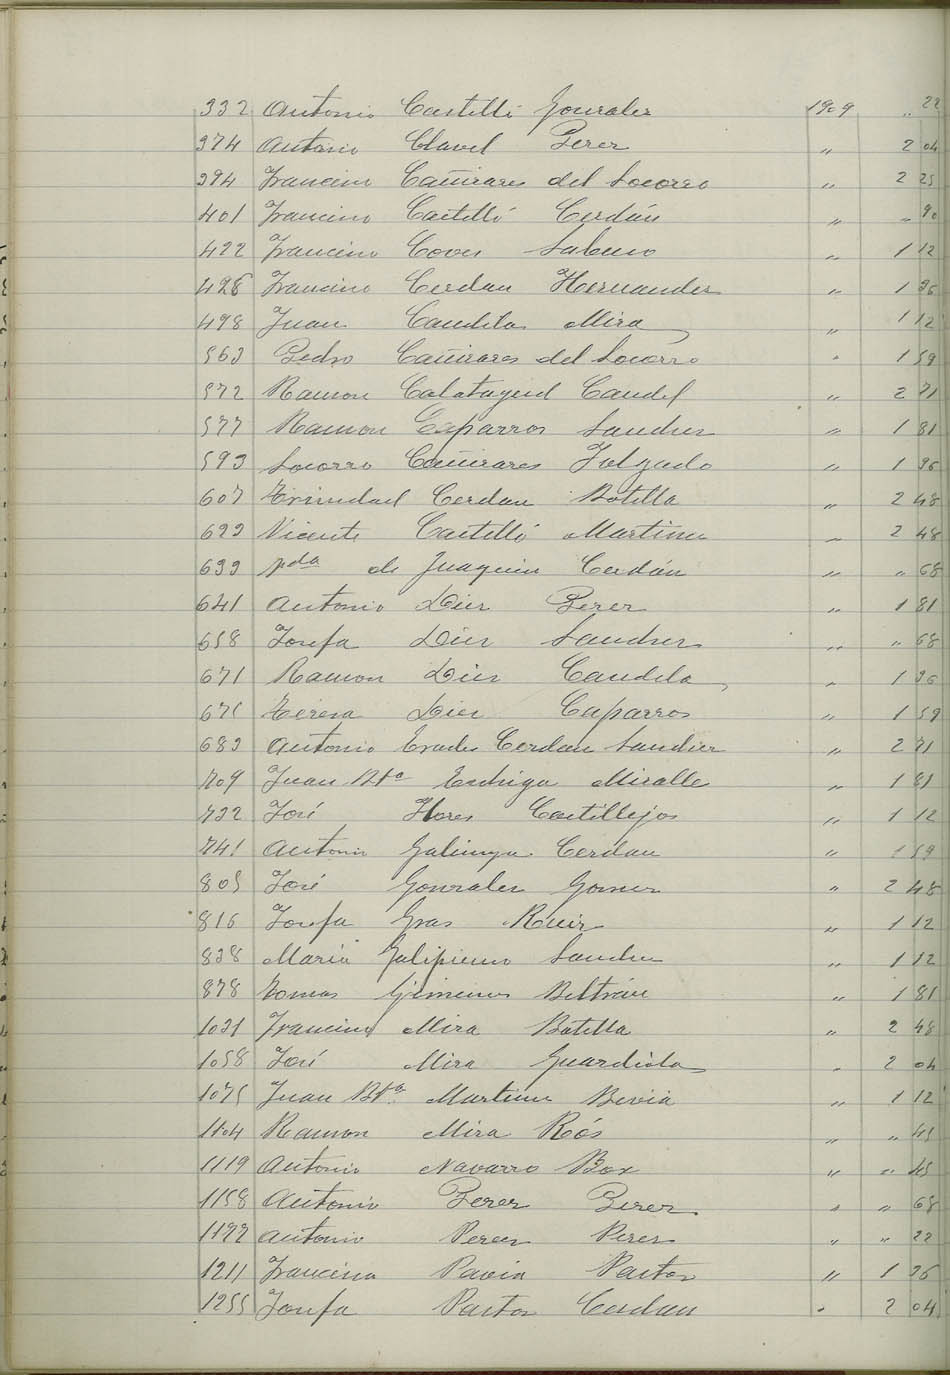 332 Antonio Castelló Gonzalez 1909 " 22
374 Antonio Clavel Perez " 2 04
394 Francisco Cañizares del Socorro " 2 25
401 Francisco Castelló Cerdán " " 90
422 Francisco Coves Sabuco " 1 12
428 Francisco Cerdan Hernandez " 1 36
498 Juan Candela Mira " 1 12
563 Pedro Cañizares del Socorro " 1 59
572 Ramon Calatayud Candel " 2 71
577 Ramon Caparros Sanchez " 1 81
593 Socorro Cañizares Folgado " 1 36
607 Trinidad Cerdan Botella " 2 48
623 Vicente Castelló Martinez " 2 48
633 Vda de Juaquin Cerdán " " 68
641 Antonio Diez Perez " 1 81
658 Josefa Diez Sanchez " " 68
671 Ramon Diez Candela " 1 36
675 Teresa Diez Caparros " 1 59
683 Antonio Erades Cerdan Sanchez " 2 71
709 Juan Bta Miralle " 1 81
732 José Flores Castillejos " 1 12
741 Antonio Cerdan " 1 59
805 José Gonzalez Gomez " 2 48
816 Josefa Gras Ruiz " 1 12
828 Maria Galipienso Sanchez " 1 12
878 Tomas Gimenez Beltrán " 1 81
1031 Francisco Mira Botella " 2 48
1058 José Mira Guardiola " 2 04
1075 Juan Bta Martinez Bevia " 1 12
1104 Ramon Mira Rós " " 45
1119 Antonio Navarro Box " " 45
1158 Antonio Perez Perez " " 68
1177 Antonio Perez Perez " " 22
1211 Francisca Pavia Pastor " 1 36
1255 Josefa Pastor Cerdan " 2 04